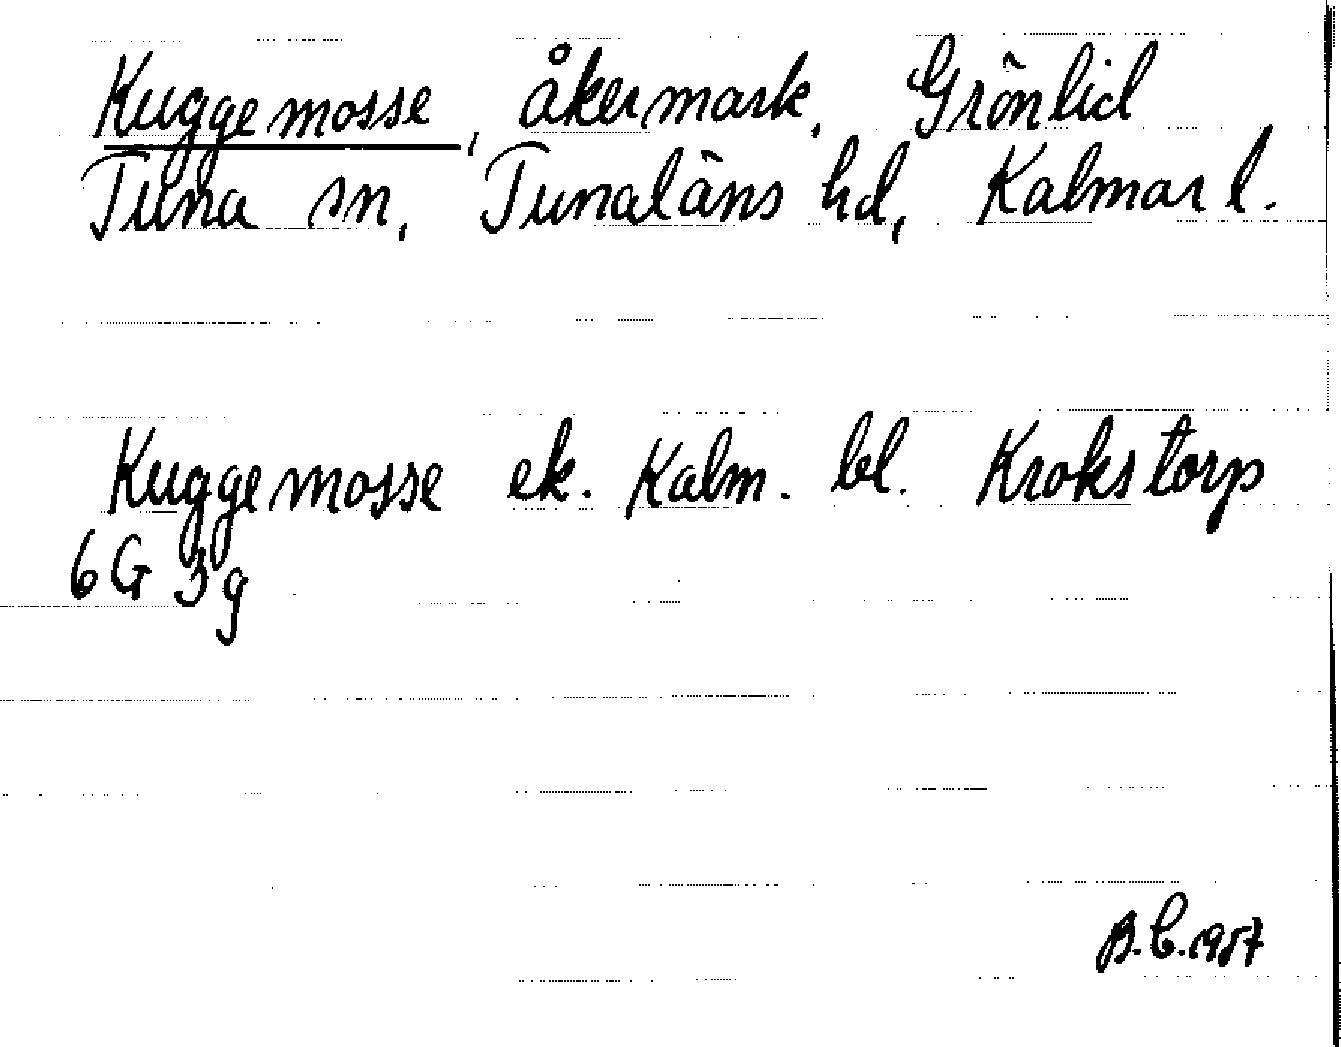 Kuggemosse, åkermark, Grönlid
Tuna sn, Tunaläns hd, Kalmar l.
Kuggemosse ek. Kalm. bl. Krokstorp
6 G 3 g
B.C. 1957